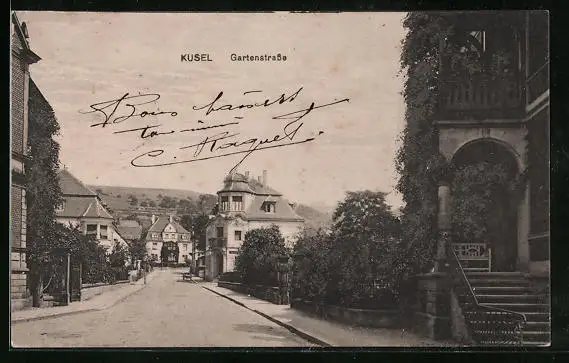 KUSEL Gartenstraße
Bons baisers
C. Raquet.